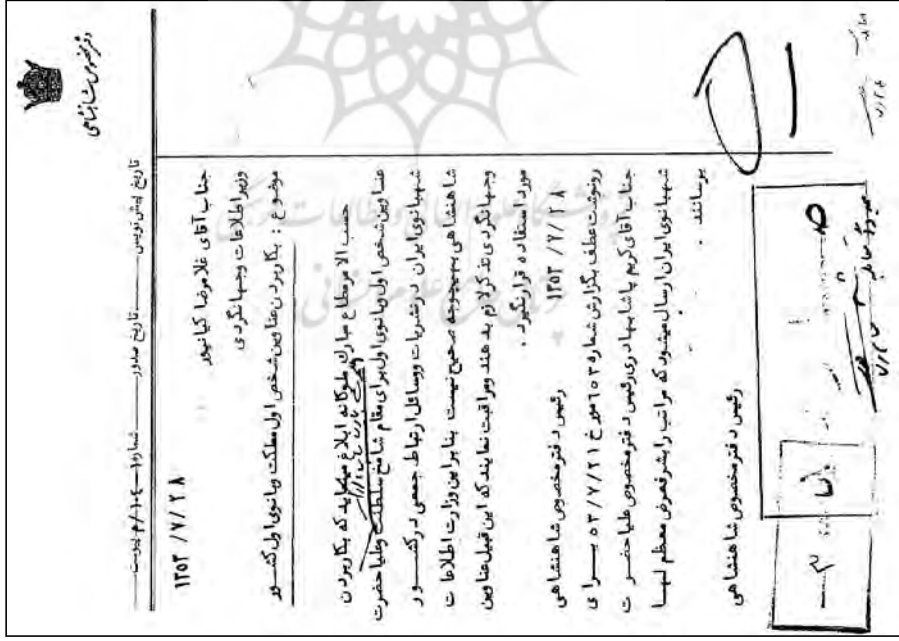 دفتر مخصوص شاهنشاهی
تاریخ پیش نویس تاریخ صدور شماره ۱-۱۰۴/م پیوست
۱۳۵۳/۷/۲۸
جناب آقای غلامرضا کیانپور
وزیر اطلاعات وجهانگردی
موضوع : بکاربردن عناوین شخص اول مملکت وبانوی اول کشور
حسب الامر مطاع مبارک ملوکانه ابلاغ مینماید که بکاربردن
عناوین شخص اول وبانوی اول برای مقام شامخ سلطنت وعلیاحضرت
شهبانوی ایران درنشریات ووسائل ارتباط جمعی درکشور
شاهنشاهی بهیچوجه صحیح نیست بنابراین وزارت اطلاعات
وجهانگردی تذکر لازم بدهند ومراقبت نمایند که این قبیل عناوین
مورد استفاده قرارنگیرد .
رئیس دفترمخصوص شاهنشاهی
۱۳۵۳/۷/۲۸
رونوشت عطف بگزارش شماره ۶۵۳ مورخ ۵۳/۷/۲۱ برای
جناب آقای کریم پاشا بهادری رئیس دفترمخصوص علیاحضرت
شهبانوی ایران ارسال میشود که مراتب را بشرفعرض معظم لها
برسانند .
رئیس دفترمخصوص شاهنشاهی
پژوهشگاه علوم انسانی و مطالعات فرهنگی
پرتال جامع علوم انسانی